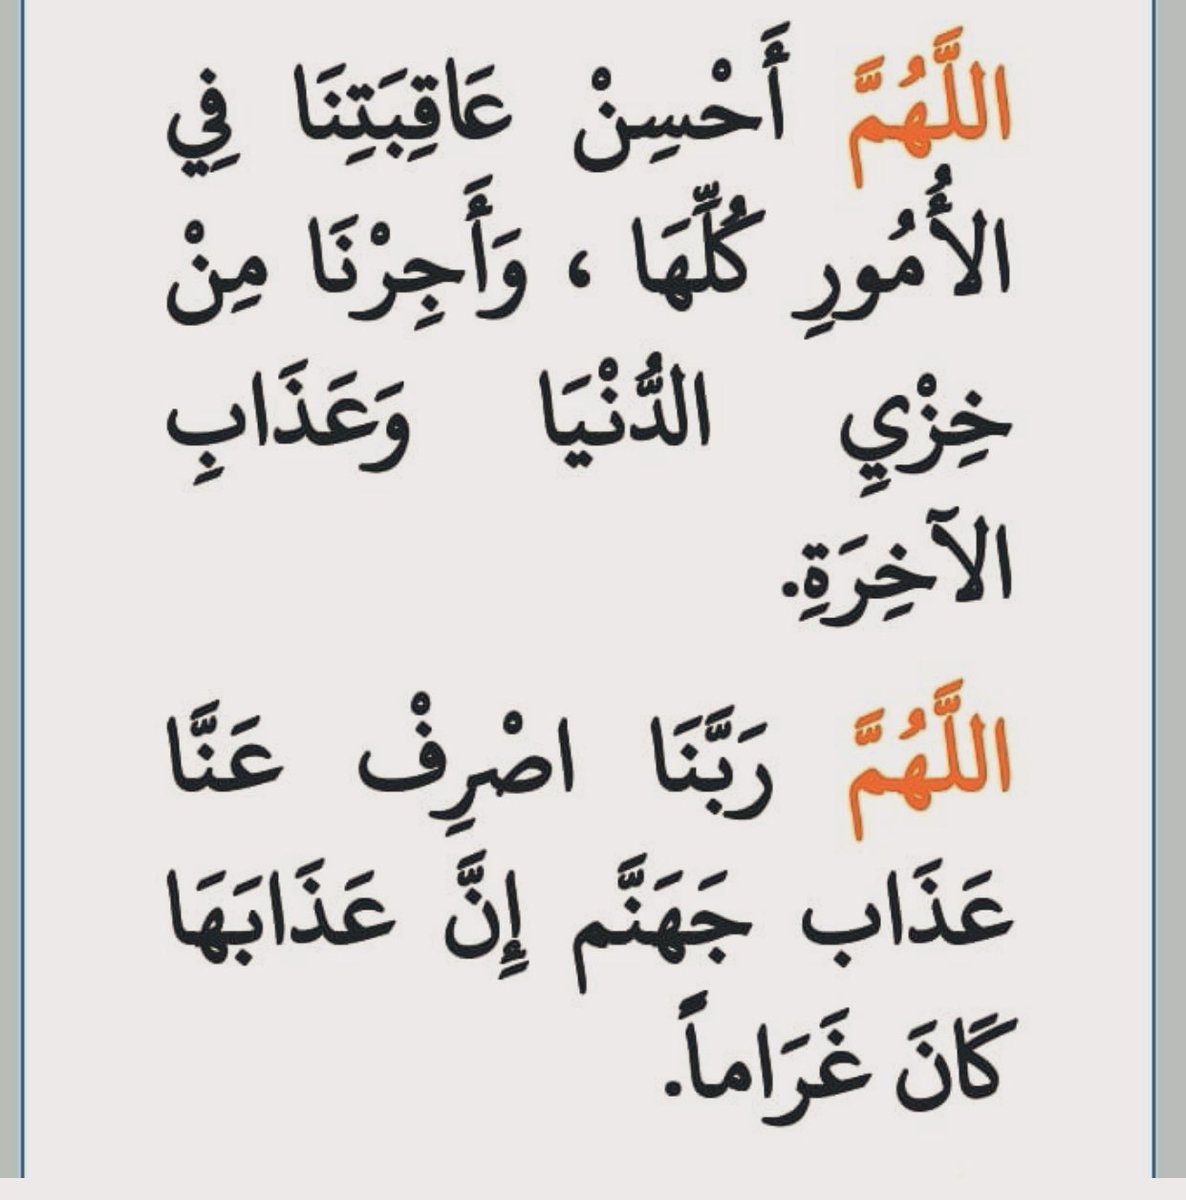 اللَّهُمَّ أَحْسِنْ عَاقِبَتِنَا فِي
الأُمُورِ كُلِّهَا ، وَأَجِرْنَا مِنْ
خِزْيِ الدُّنْيَا وَعَذَابِ
الآخِرَةِ.
اللَّهُمَّ رَبَّنَا اصْرِفْ عَنَّا
عَذَاب جَهَنَّم إِنَّ عَذَابَهَا
كَانَ غَرَاماً.